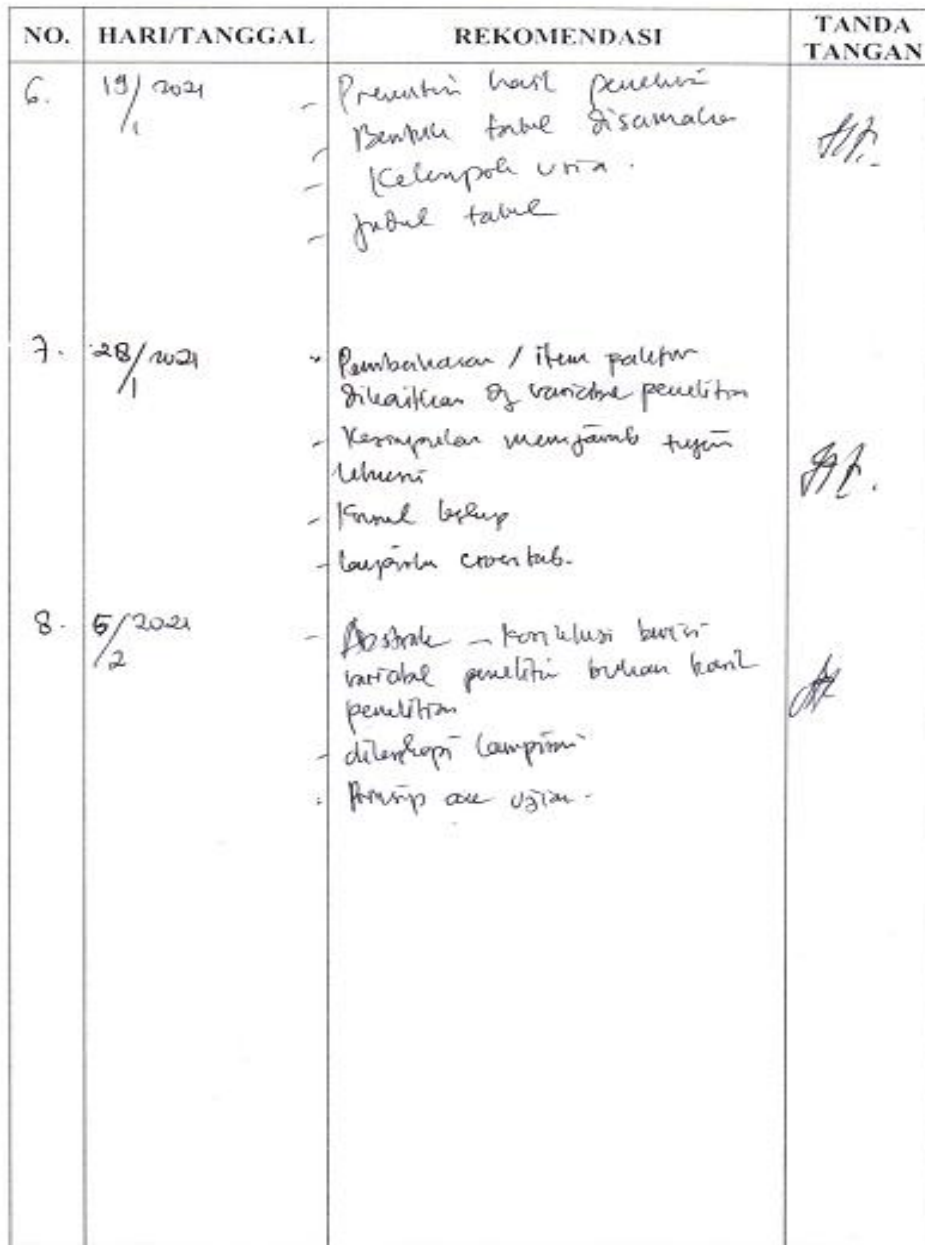 NO. HARI/TANGGAL REKOMENDASI TANDA TANGAN
6. 19/1 2021 - hasil
- Bentuk tabel disamakan
- Kelompok usia.
- Judul tabel
7. 28/1 2021 - Pembahasan / item
dikaitkan dg variabel penelitian
- Kesimpulan menjawab tujuan
- Konsul
- crosstab.
8. 5/2 2021 - Abstrak - konklusi berisi
variabel penelitian bukan hasil
penelitian
- dilengkapi lampiran
- Prinsip acc ujian.